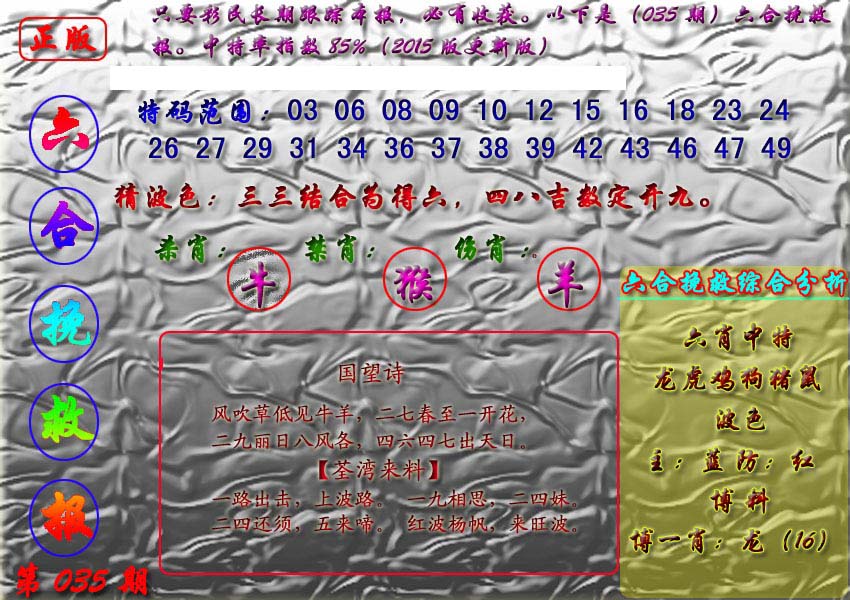 正版
只要彩民长期跟踪本报，必有收获。以下是（035期）六合挽救
报。中特率指数85%（2015版更新版）
六
合
挽
救
报
第035期
特码范围：03 06 08 09 10 12 15 16 18 23 24
26 27 29 31 34 36 37 38 39 42 43 46 47 49
猜波色：三三结合为得六，四八吉数定开九。
杀肖：牛 禁肖：猴 伤肖：羊
国望诗
风吹草低见牛羊，二七春至一开花，
二九丽日八风各，四六四七出天日。
【荃湾来料】
一路出击，上波路。 一九相思，二四妹。
二四还须，五来啼。 红波杨帆，来旺波。
六合挽救综合分析
六肖中特
龙虎鸡狗猪鼠
波色
主：蓝防：红
博料
博一肖：龙（16）